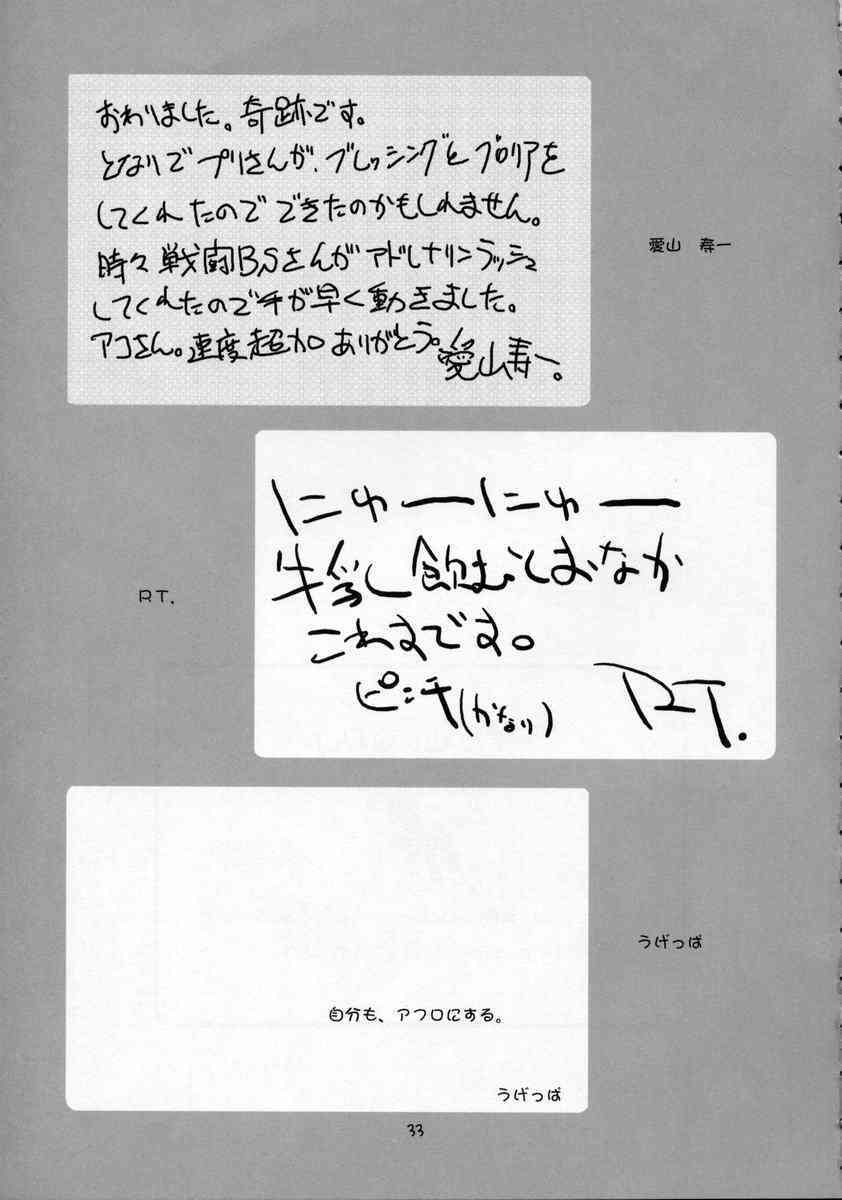 おわりました。奇跡です。
となりでプリさんが、ブレッシングとグロリアを
してくれたので できたのかもしれません。
時々戦闘BSさんがアドレナリンラッシュ
してくれたので手が早く動きました。
アコさん。速度超加 ありがとう。愛山寿一。
愛山 寿一
にゅーにゅー
牛乳飲むとおなか
こわすです。
ピンチ(かなり)
RT.
RT.
うげっぱ
自分も、アフロにする。
うげっぱ
33